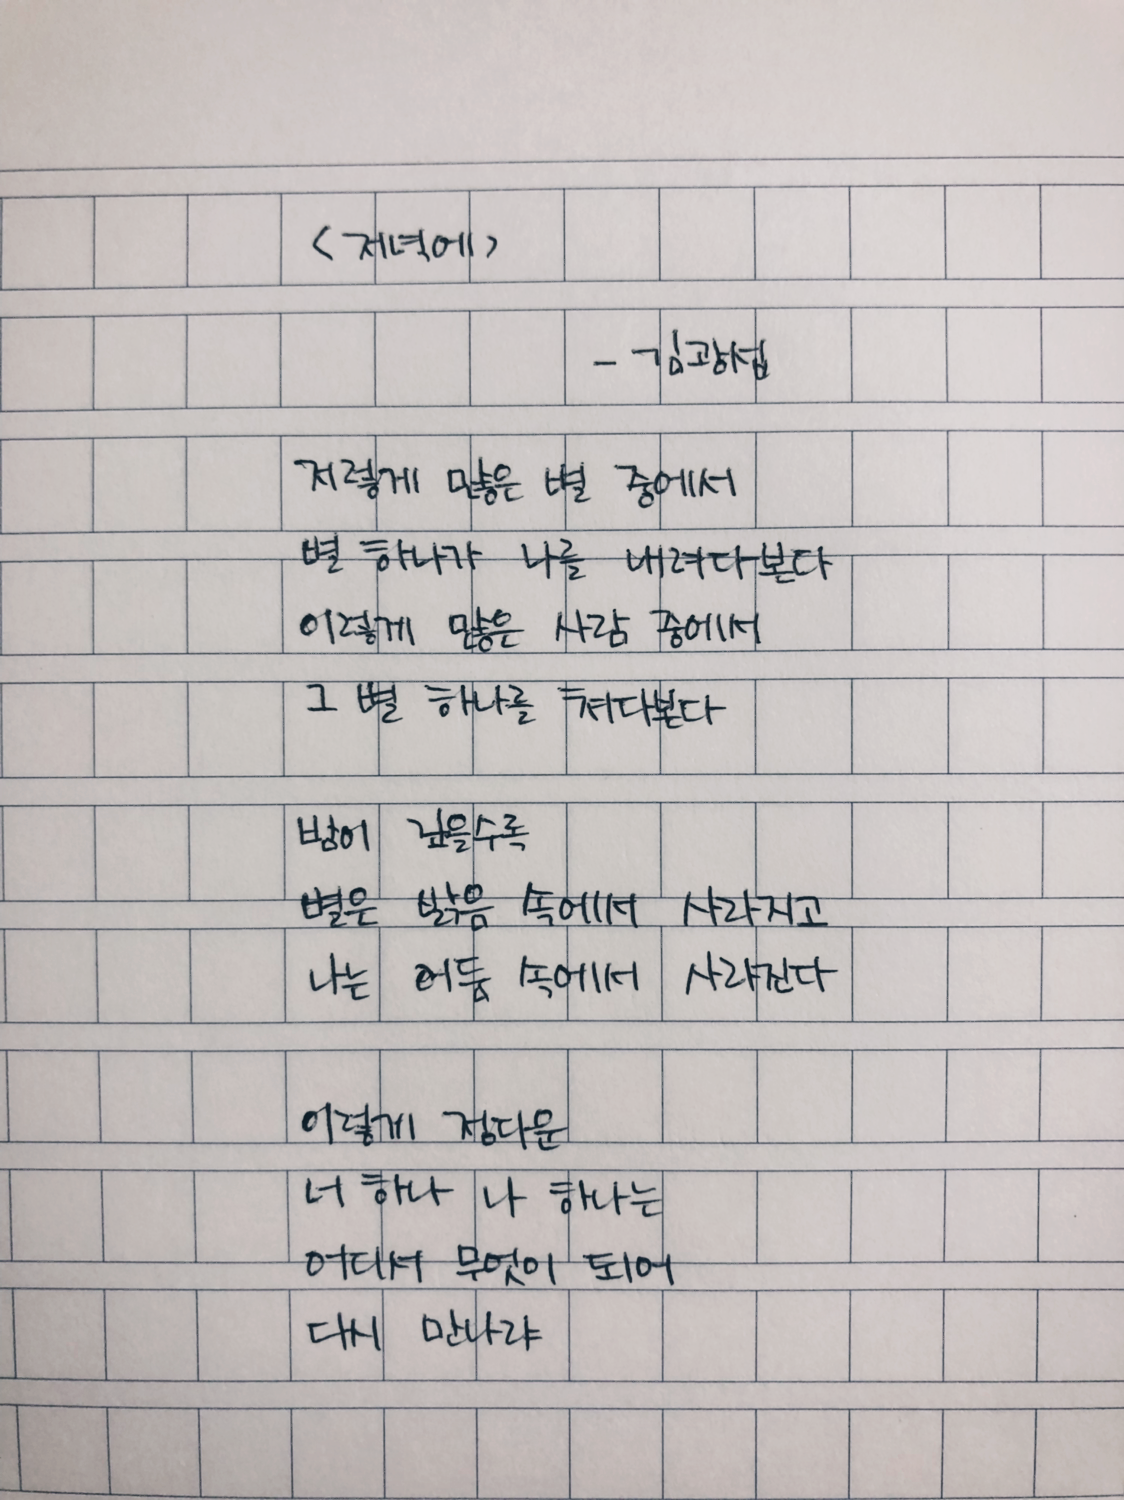 <저녁에>
- 김광섭
저렇게 많은 별 중에서
별 하나가 나를 내려다본다
이렇게 많은 사람 중에서
그 별 하나를 쳐다본다
밤이 깊을수록
별은 밝음 속에서 사라지고
나는 어둠 속에서 사라진다
이렇게 정다운
너 하나 나 하나는
어디서 무엇이 되어
다시 만나랴